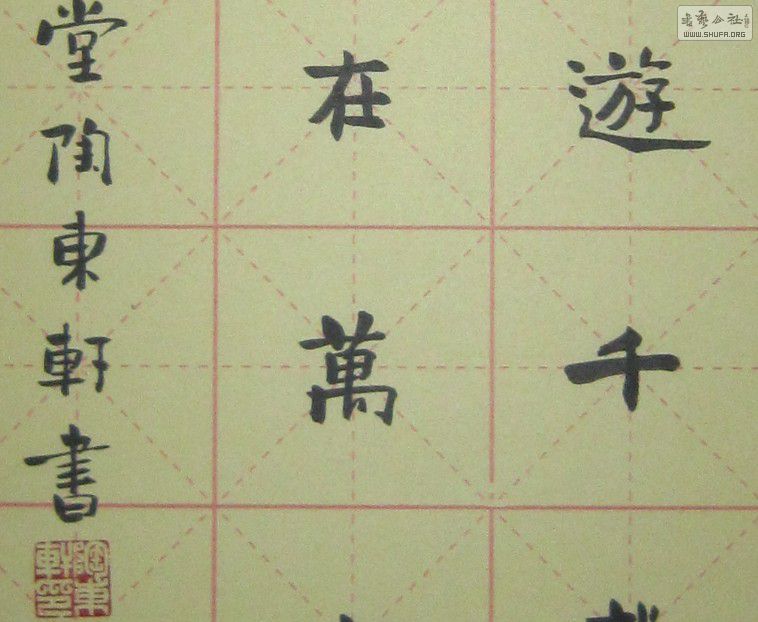 遊千
在萬
堂陶東軒書
書藝公社
WWW.SHUFA.ORG